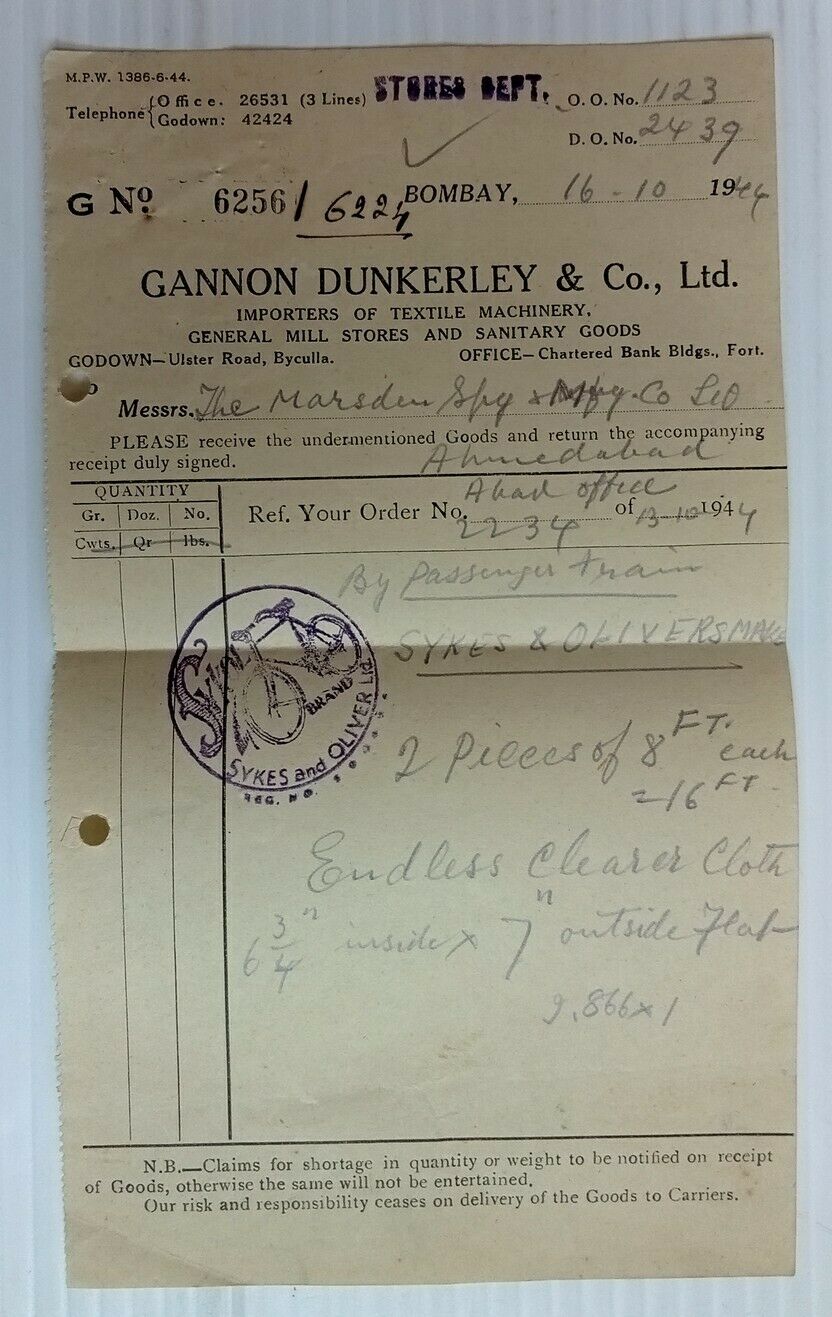 M.P.W. 1386-6-44.
Telephone { Office. 26531 (3 Lines)
Godown: 42424
STORES DEPT.
O. O. No. 1123
D. O. No. 2439
G No. 6256 / 6224
BOMBAY, 16-10 1944
GANNON DUNKERLEY & Co., Ltd.
IMPORTERS OF TEXTILE MACHINERY,
GENERAL MILL STORES AND SANITARY GOODS
GODOWN—Ulster Road, Byculla.
OFFICE—Chartered Bank Bldgs., Fort.
Messrs. The Marsden Spg & Mfg. Co Ltd
PLEASE receive the undermentioned Goods and return the accompanying
receipt duly signed.
Ahmedabad
QUANTITY
Gr. Doz. No.
Cwts. Qr lbs.
Abad office
Ref. Your Order No. 2234 of 13-10-1944
By Passenger train
SYKES & OLIVERS MAKE
BRAND
SYKES and OLIVER Ltd
REG. NO.
2 Pieces of 8 FT. each
=16 FT.
Endless Clearer Cloth
6 3/4" inside x 7" outside Flat
9.866x1
N.B.—Claims for shortage in quantity or weight to be notified on receipt
of Goods, otherwise the same will not be entertained.
Our risk and responsibility ceases on delivery of the Goods to Carriers.